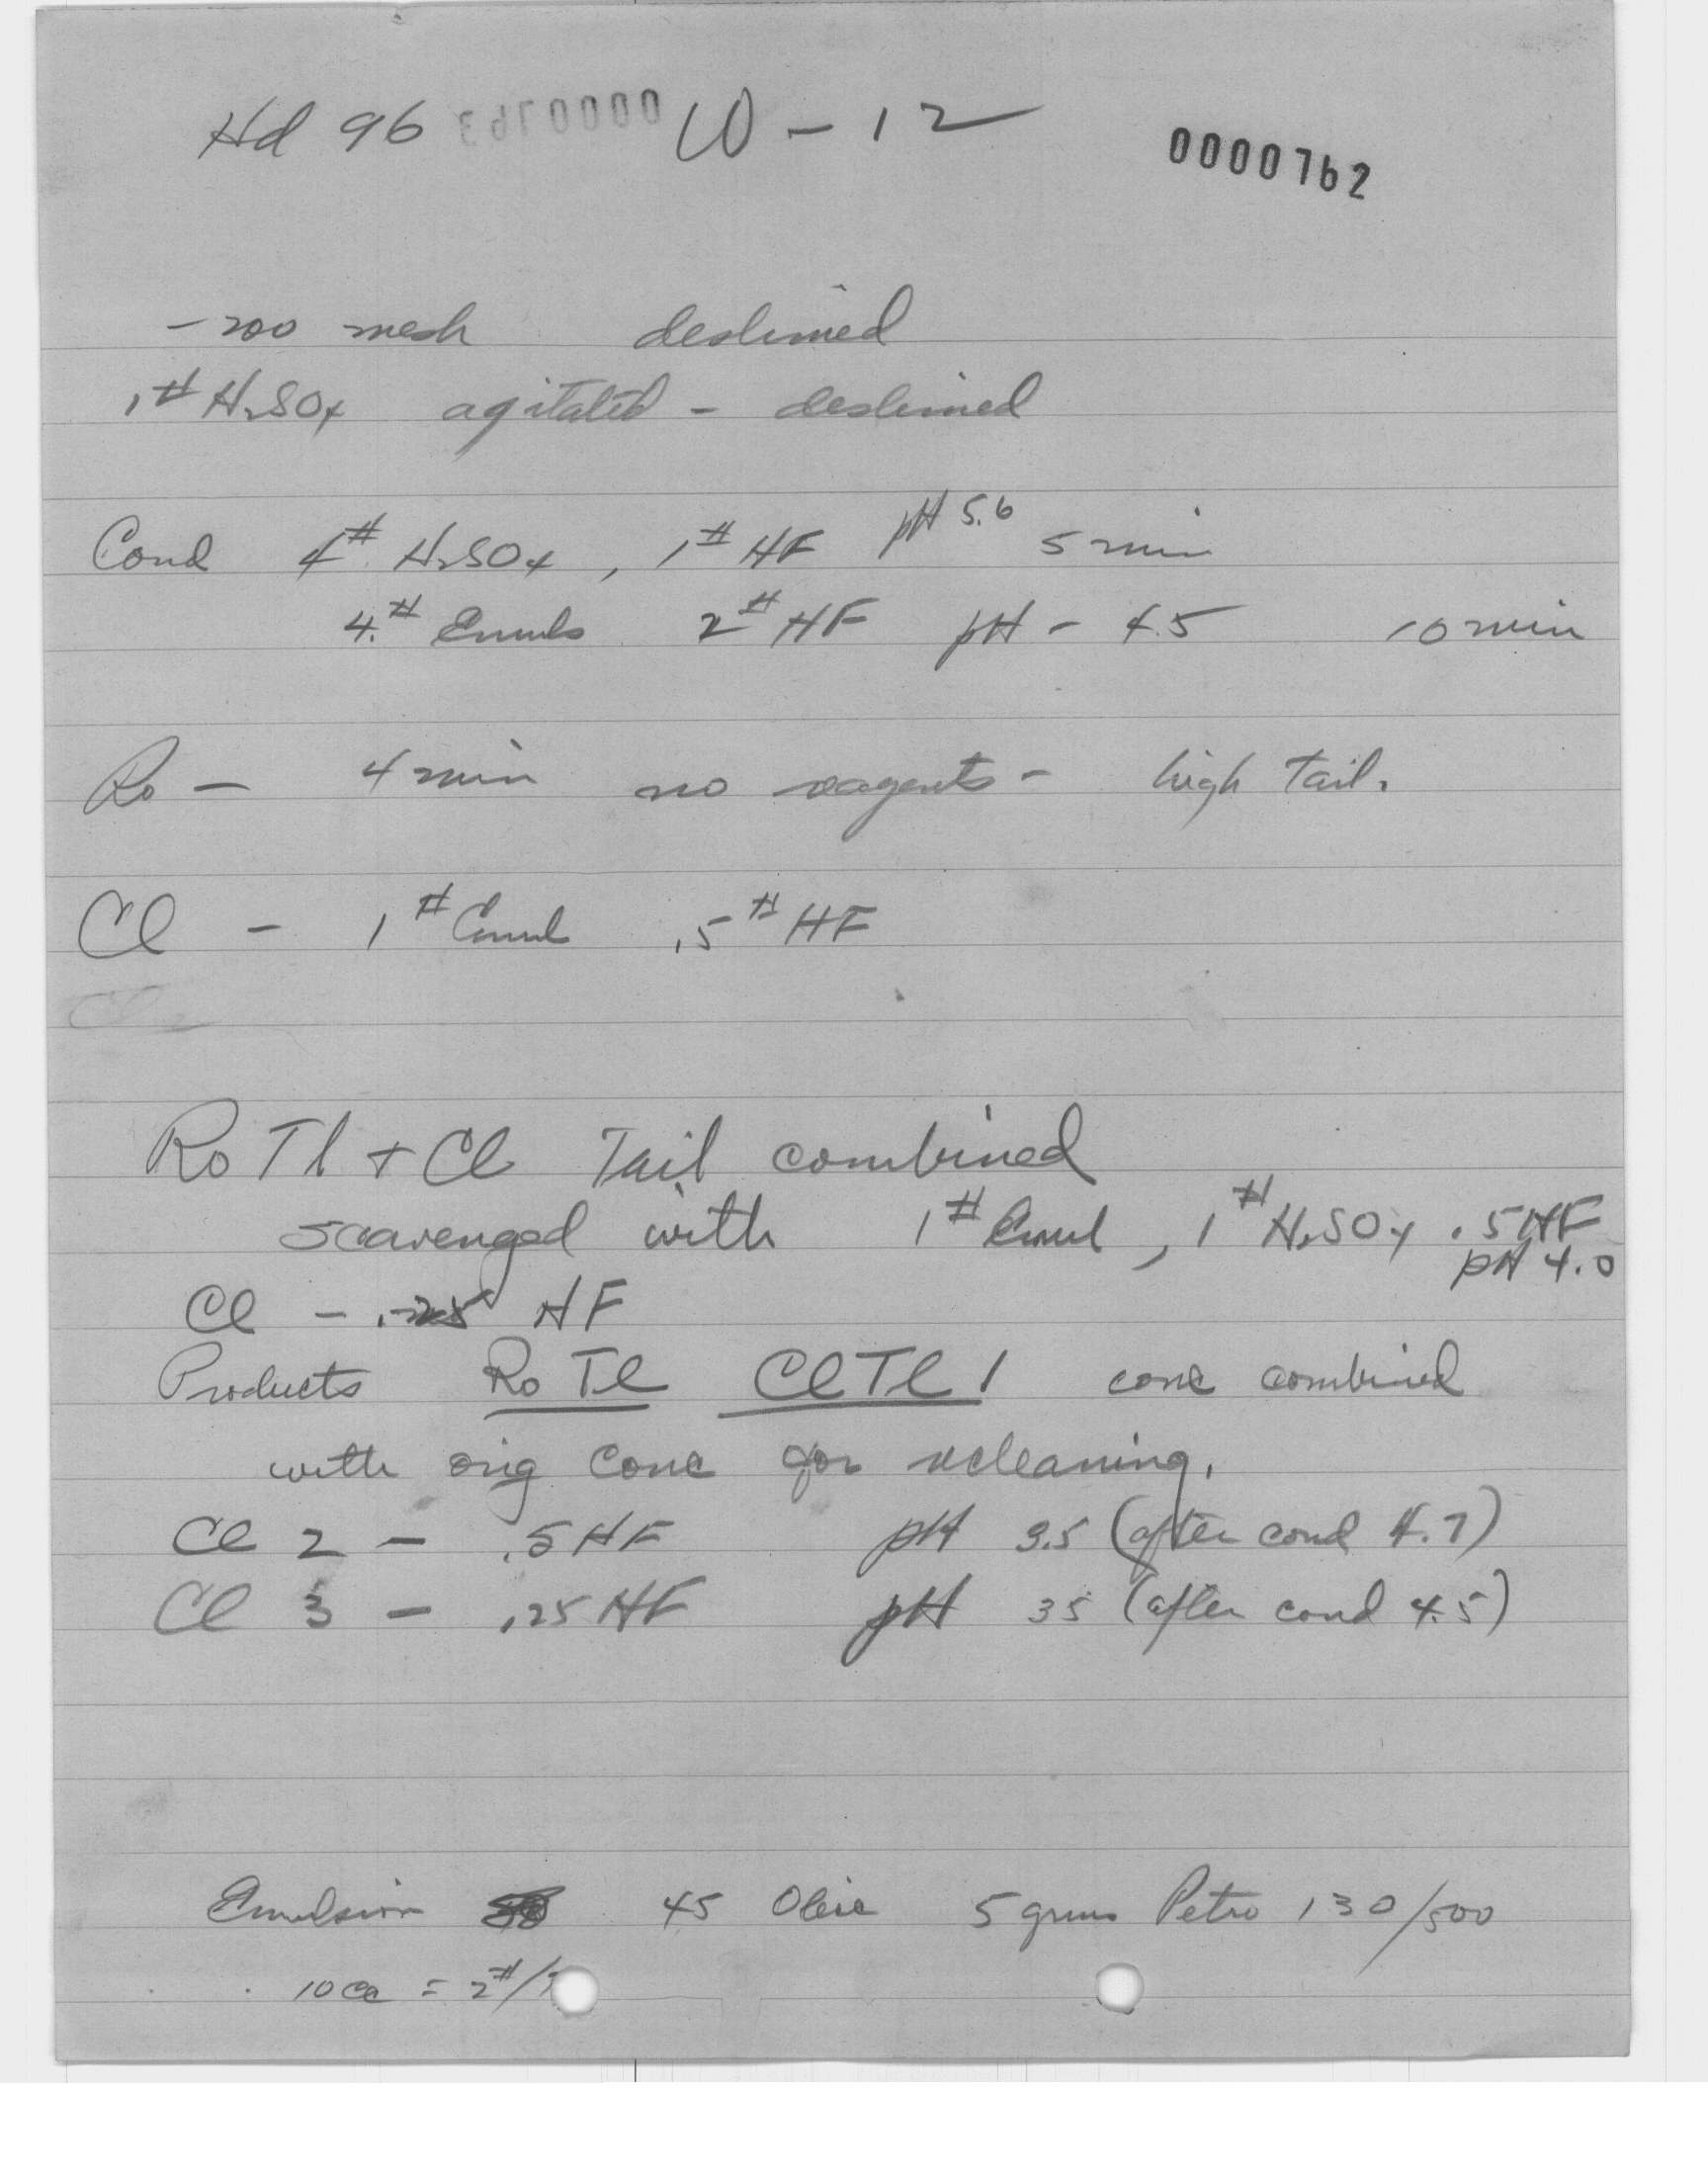 Hd 96 W-12 0000762
-200 mesh deslimed
1# H2SO4 agitated - deslimed
Cond 4# H2SO4, 1# HF pH 5.6 5 min
4.# Emuls 2# HF pH - 4.5 10 min
Ro - 4 min no reagents - high tail.
Cl - 1# Emul .5# HF
Ro Tl + Cl Tail combined
scavenged with 1# Emul, 1# H2SO4 .5 HF
pH 4.0
Cl - .25 HF
Products Ro Tl Cl Tl 1 conc combined
with orig conc for recleaning.
Cl 2 - .5 HF pH 3.5 (after cond 4.7)
Cl 3 - .25 HF pH 35 (after cond 4.5)
Emulsion 45 Oleic 5 grms Petro 130/500
10 cc = 2#/